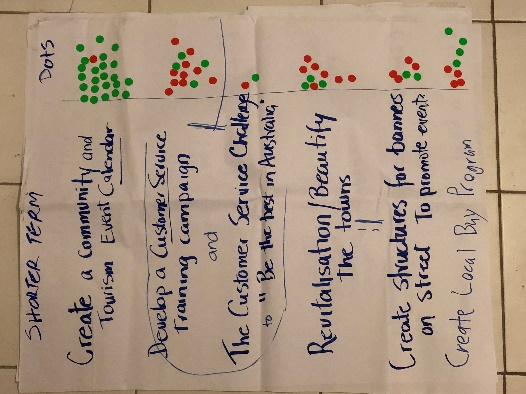 SHORTER TERM
DOTS
Create a Community and
Tourism Event Calendar
Develop a Customer Service
Training campaign
and
The Customer Service Challenge
to "Be the best in Australia"
Revitalisation/Beautify
The towns
Create structures for banners
on street To promote events
Create Local Buy Program